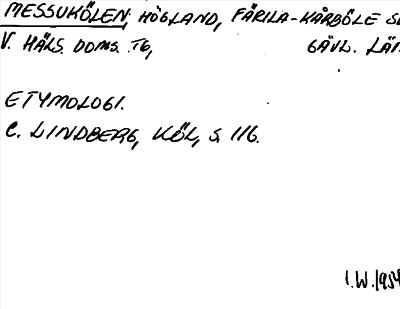 MESSUKÖLEN, HÖGLAND, FÄRILA-KÅRBÖLE S
V. HÄLS. DOMS. TG, GÄVL. LÄN
ETYMOLOGI.
C. LINDBERG, KÖL, S 116.
I.W. 1954